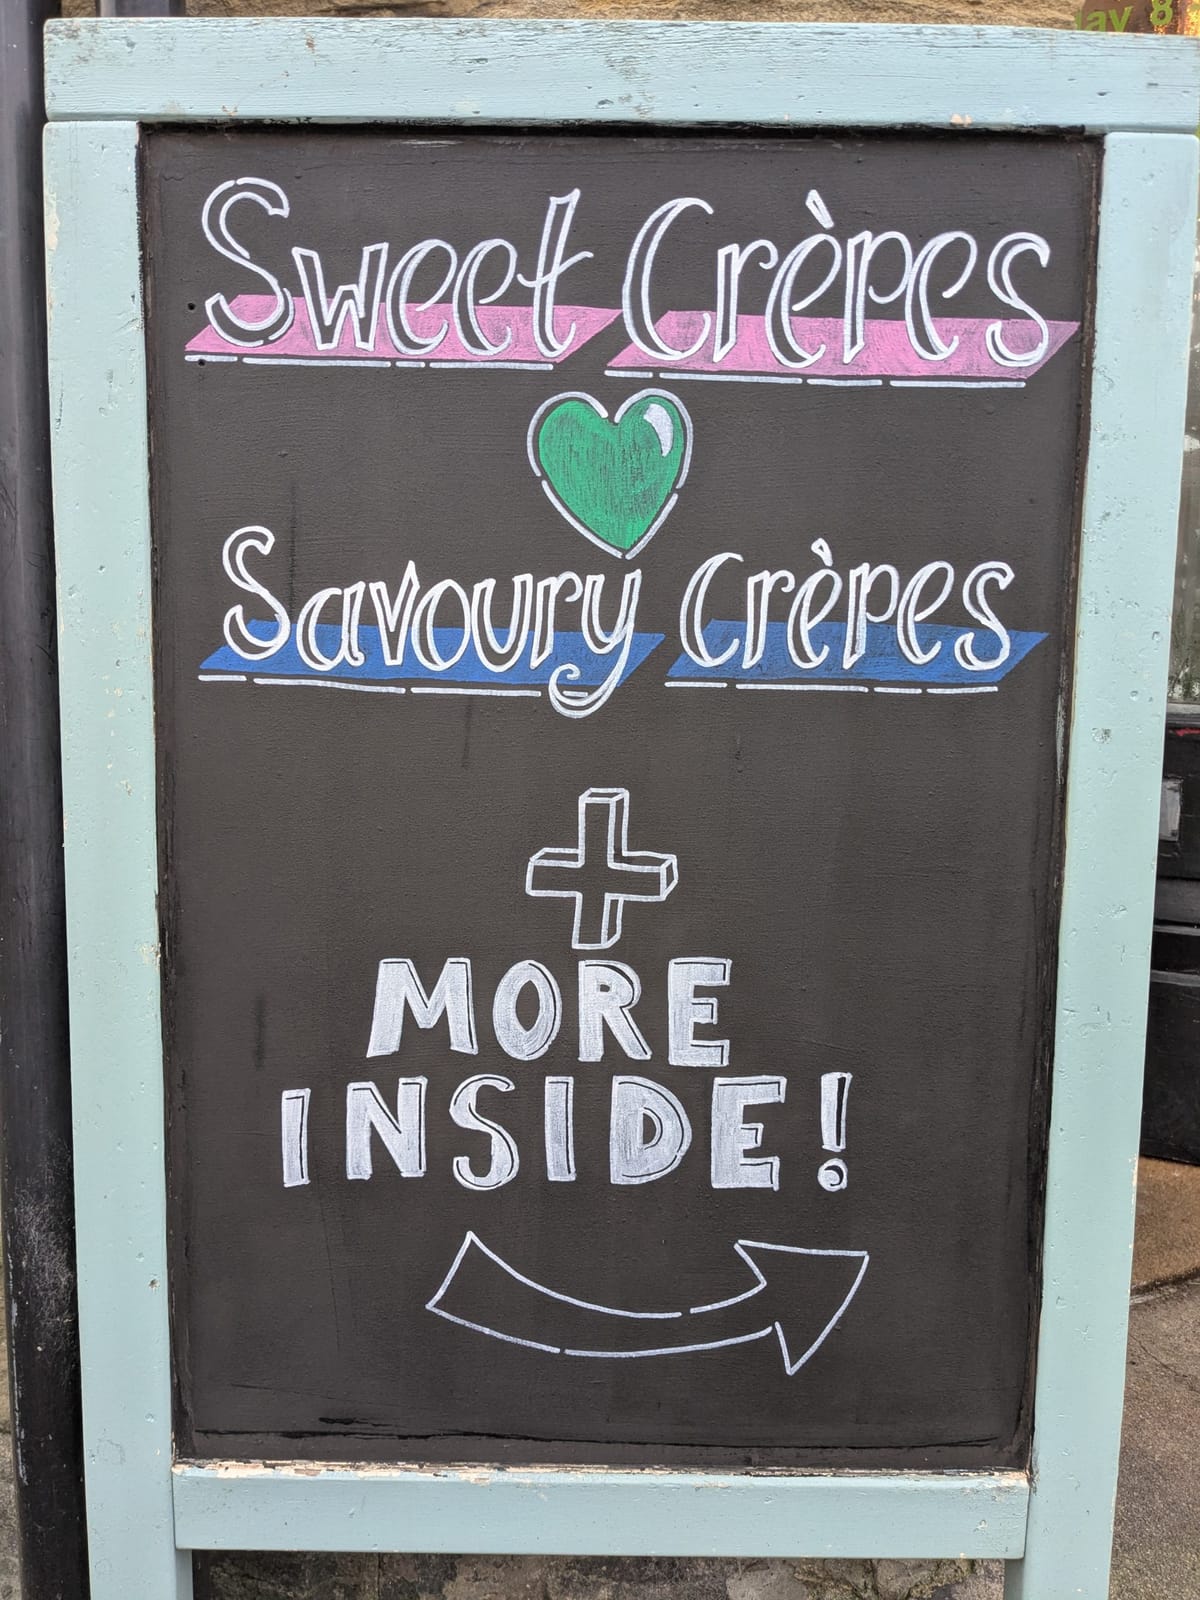 ay 8
Sweet Crèpes
Savoury Crèpes
+
MORE
INSIDE!